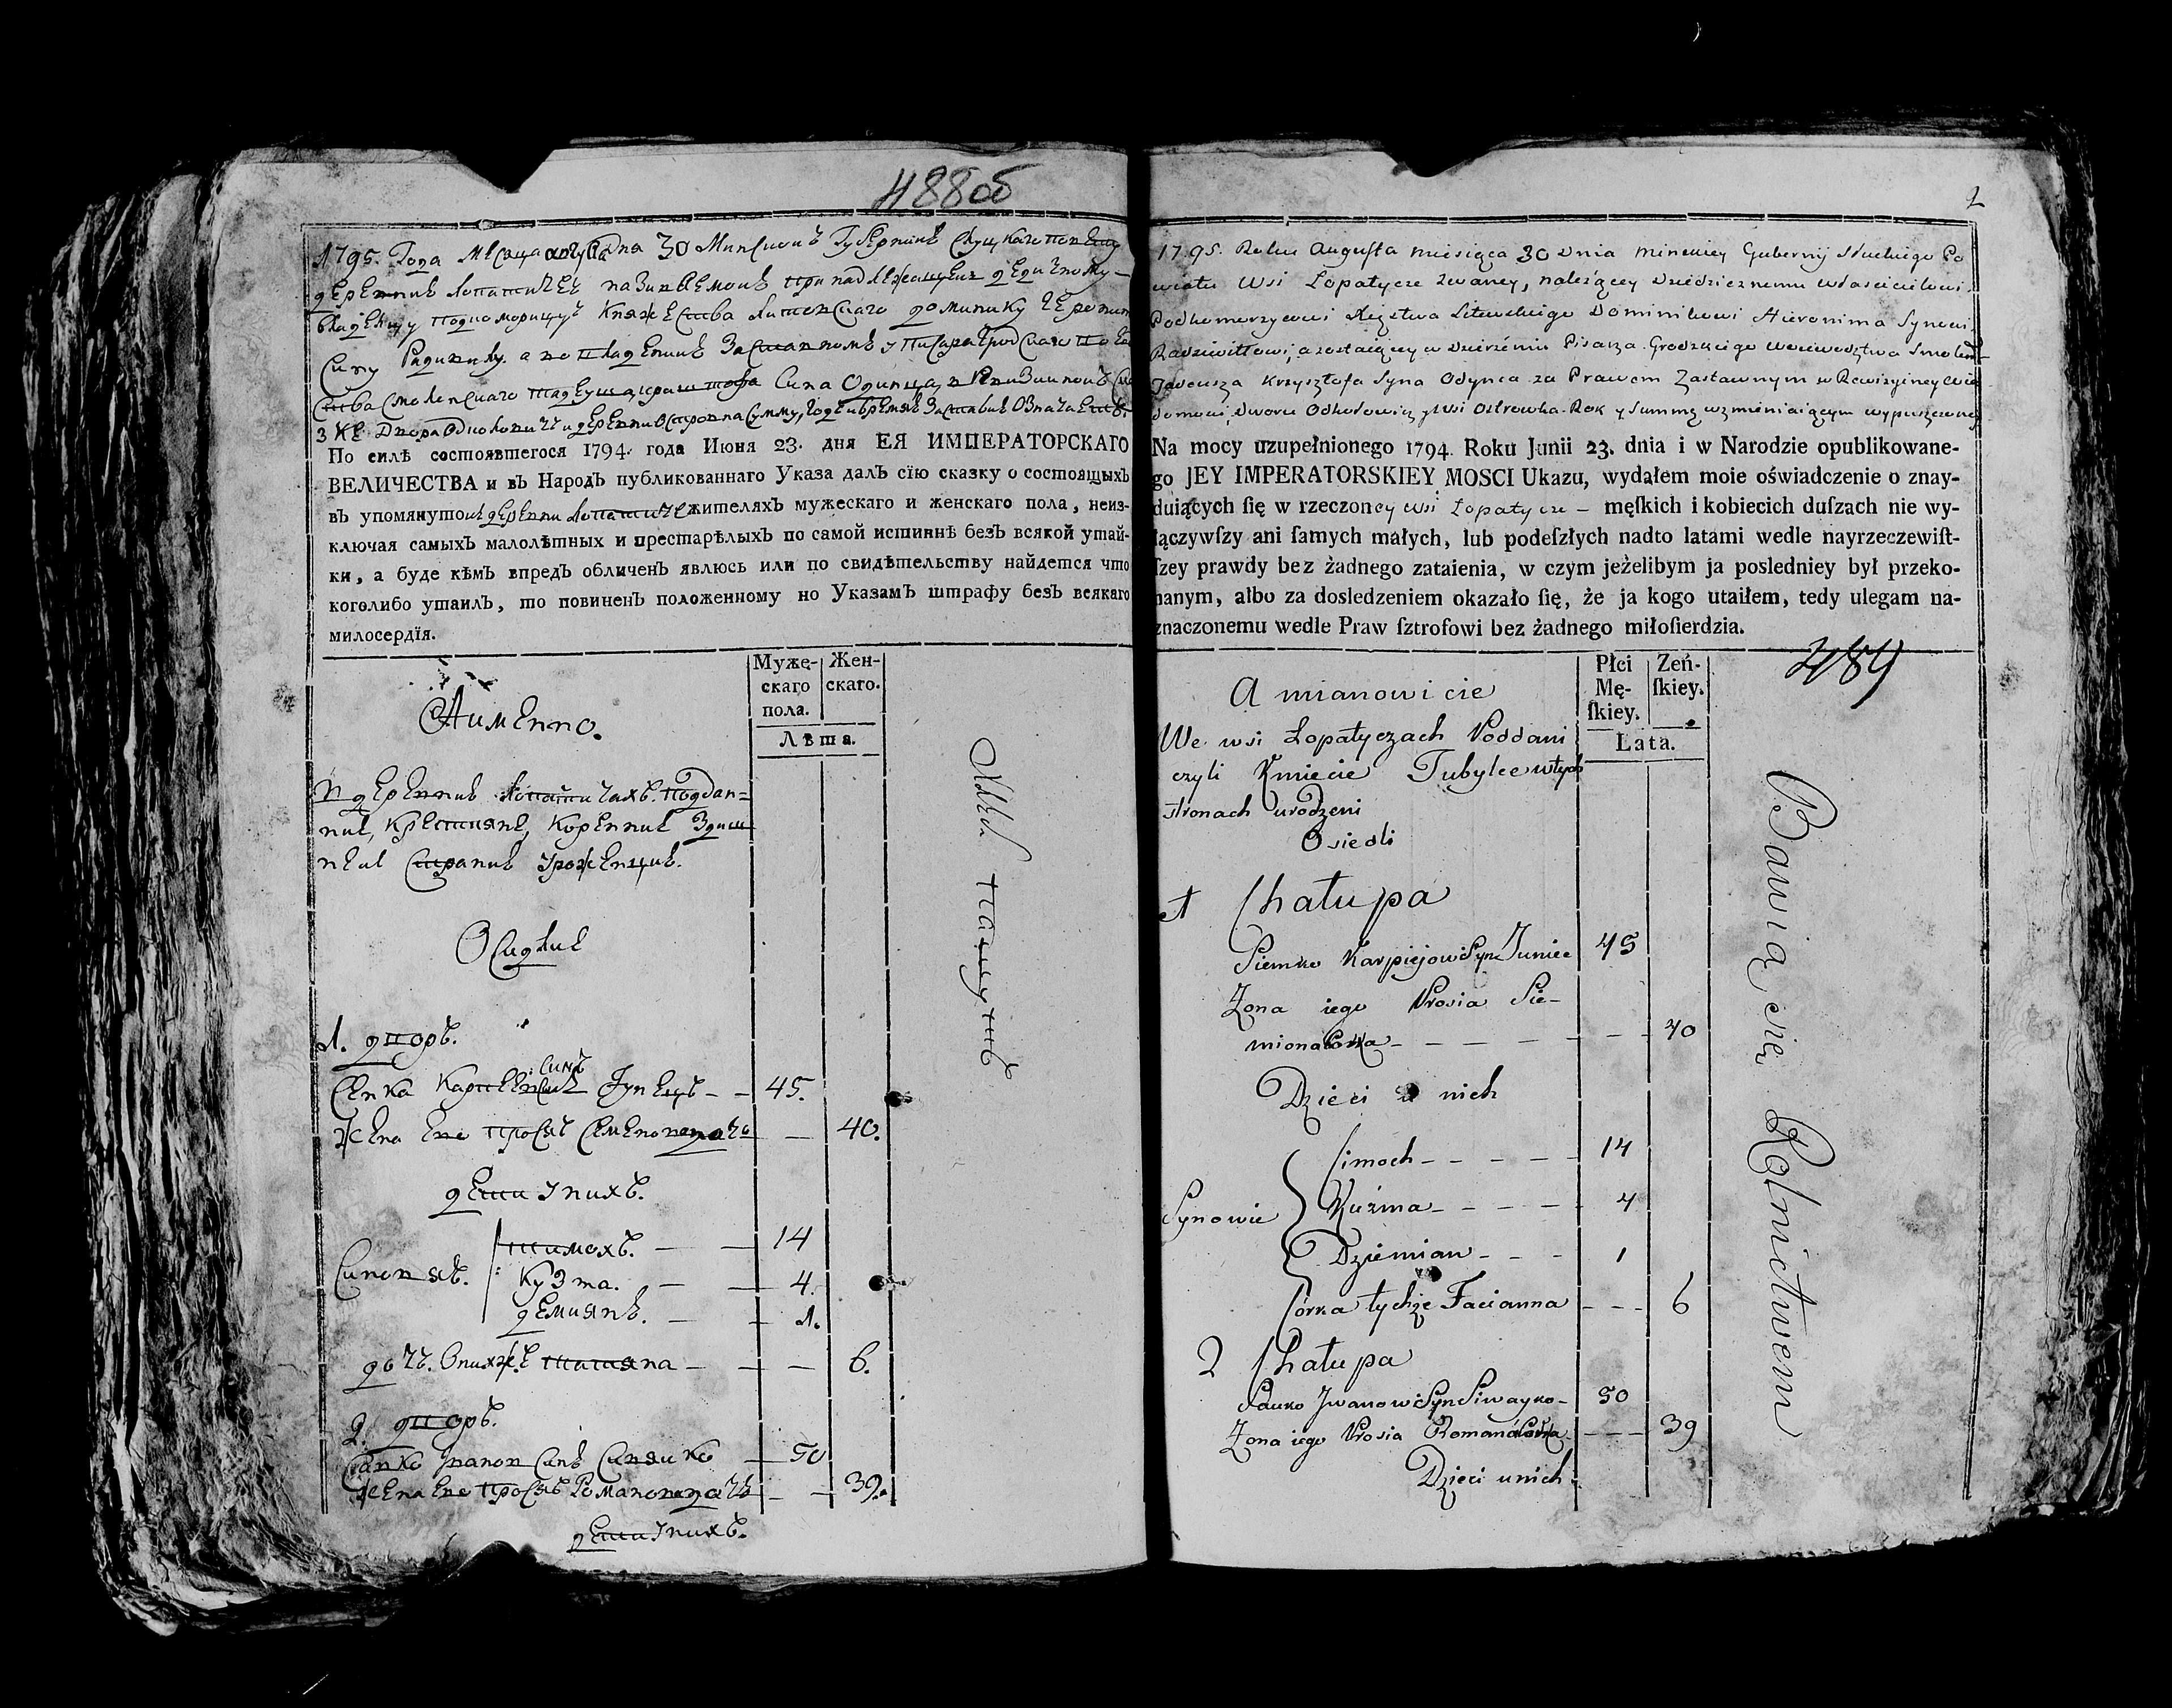 488об
1795. Года Месяца августа дня 30 Минской Губернии Слуцкаго повету
деревни Лопатичех называемой принадлежащей дедичному
владелцу подкоморицу Княжества Литовскаго Доминику Героним
Сину Радивилу а во владении заставном у писара гродскаго
ства Смоленскаго Тадеуша Криштофа Сина Одинца
По силѣ состоявшегося 1794. года Июня 23. дня ЕЯ ИМПЕРАТОРСКАГО
ВЕЛИЧЕСТВА и въ Народъ публикованнаго Указа далъ сїю сказку о состоящыхъ
въ упомянутой деревни Лопатиче жителяхъ мужескаго и женскаго пола, неиз-
ключая самыхъ малолѣтныхъ и престарѣлыхъ по самой истиннѣ безъ всякой утай-
ки, а буде кѣмъ впредъ обличенъ явлюсь или по свидѣтельству найдется что
коголибо утаилъ, то повиненъ положенному по Указамъ штрафу безъ всякаго
милосердїя.
Муже-
скаго
пола.
Жен-
скаго.
Лѣта.
Аименно.
В деревни Лопатичахъ. подан-
ние, крестияне, коренние здеш
неи страни уроженцие.
Оседлие
1. дворъ.
Сенка Карпеевъ Синъ Юнецъ - - 45.
жена ево Просия Семенова дочь - 40.
дети у них.
Синовя.
Тимохъ. - - 14
Кузма. - - 4.
Демиянъ. - - 1.
дочь. оних же Татияна - - - 6.
2. дворъ.
Савко Иванов Синъ Сивайко - 50
жена ево Просия Романова дочь - - 39.
дети у нихъ.
2
1795. Roku Augusta miesiąca 30 Dnia Minskiey Gubernij Słuckiego Po
wiatu Wsi Łopatycze zwaney, należącey Dziedzicznemu właścicielowi
Podkomorzycowi Xięztwa Litewskiego Dominikowi Hieronima Synowi
Radziwiłłowi, a zostaiącey w Dzierżeniu Pisarza Grodzkiego Woiewodztwa Smoleń
Tadeusza Krzysztofa Syna Odyńca za Prawem Zastawnym w Rewizyiney
Na mocy uzupełnionego 1794. Roku Junii 23. dnia i w Narodzie opublikowane-
go JEY IMPERATORSKIEY MOSCI Ukazu, wydałem moie oświadczenie o znay-
duiących ſię w rzeczoney wsi Łopatycze - męſkich i kobiecich duſzach nie wy-
łączywſzy ani ſamych małych, lub podeſzłych nadto latami wedle nayrzeczewiſt-
ſzey prawdy bez żadnego zataienia, w czym jeżelibym ja posledniey był przeko-
nanym, albo za dosledzeniem okazało ſię, że ja kogo utaiłem, tedy ulegam na-
znaczonemu wedle Praw ſztrofowi bez żadnego miłoſierdzia.
489
Płci
Mę-
ſkiey.
Zeń-
ſkiey.
Lata.
A mianowicie
We wsi Łopatyczach Poddani
czyli Kmiecie Tubylce w tych
stronach urodzeni
Osiedli
1 Chałupa
Siemko Karpiejow Syn Juniec 45
Żona iego Prosia Sie-
miona Corka - - - - - - - 40
Dzieci u nich
Synowie
Cimoch - - - - - 14
Kuźma - - - - - 4
Dziemian - - - 1
Córka tychże Tacianna - - - 6
2 Chałupa
Sauko Jwanow Syn Siwayko - 50
Żona iego Prosia Romana Corka - - - 39
Dzieci u nich
Bawią się Rolnictwem